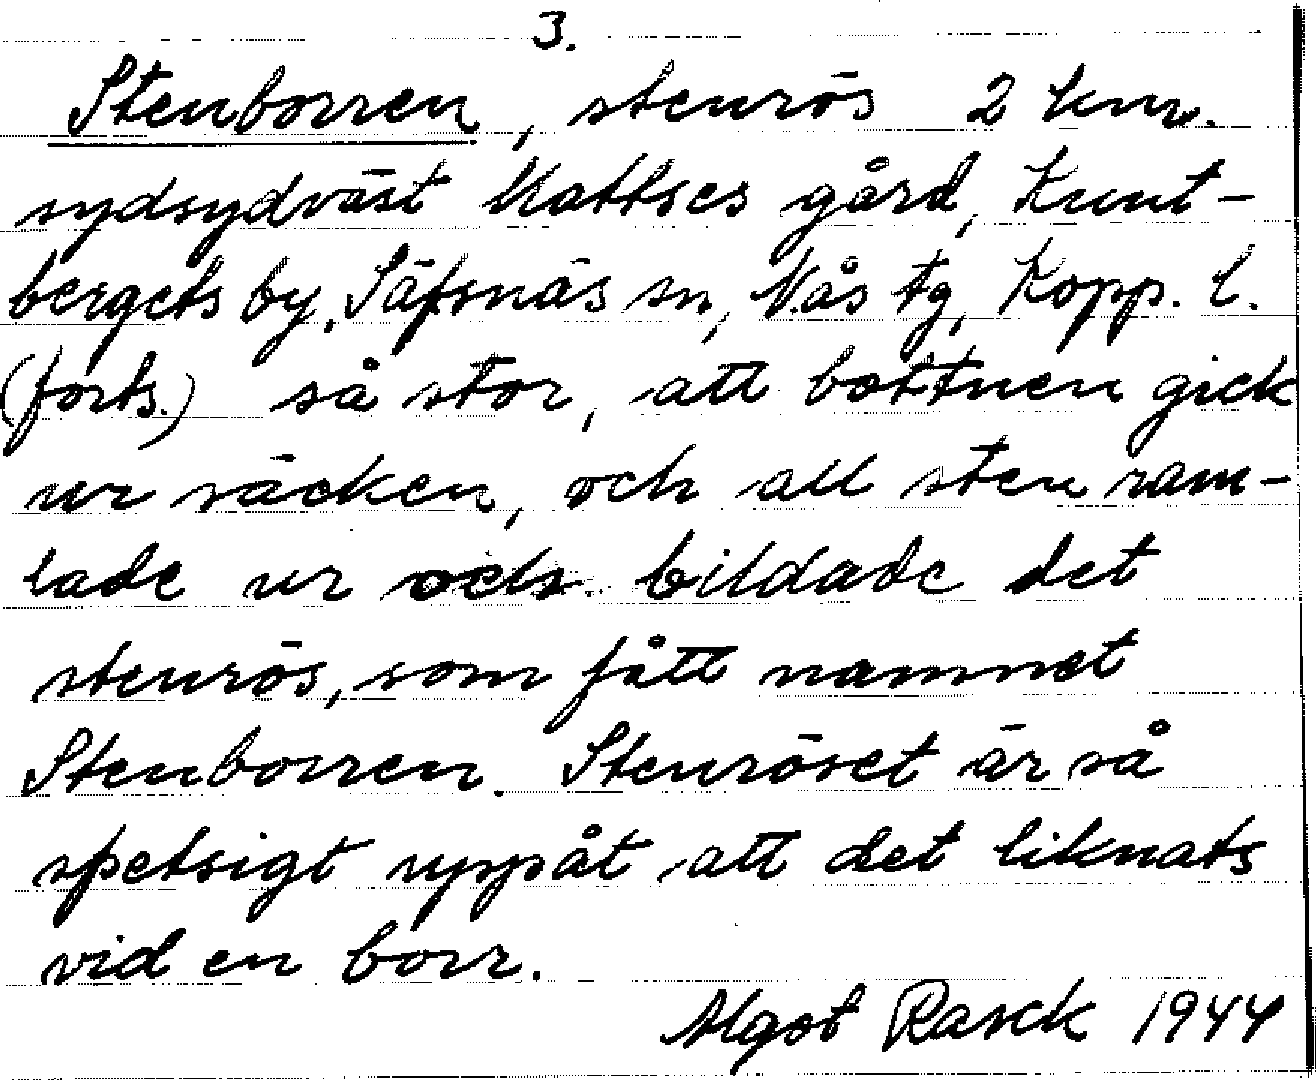 3.
Stenborren, stenrös 2 km.
sydsydväst Mattses gård, Kunt-
bergets by, Säfsnäs sn, Nås tg, Kopp. l.
(forts.) så stor, att bottnen gick
ur säcken, och all sten ram-
lade ur och bildade det
stenrös, som fått namnet
Stenborren. Stenröset är så
spetsigt uppåt att det liknats
vid en borr.
Algot Rasck 1944